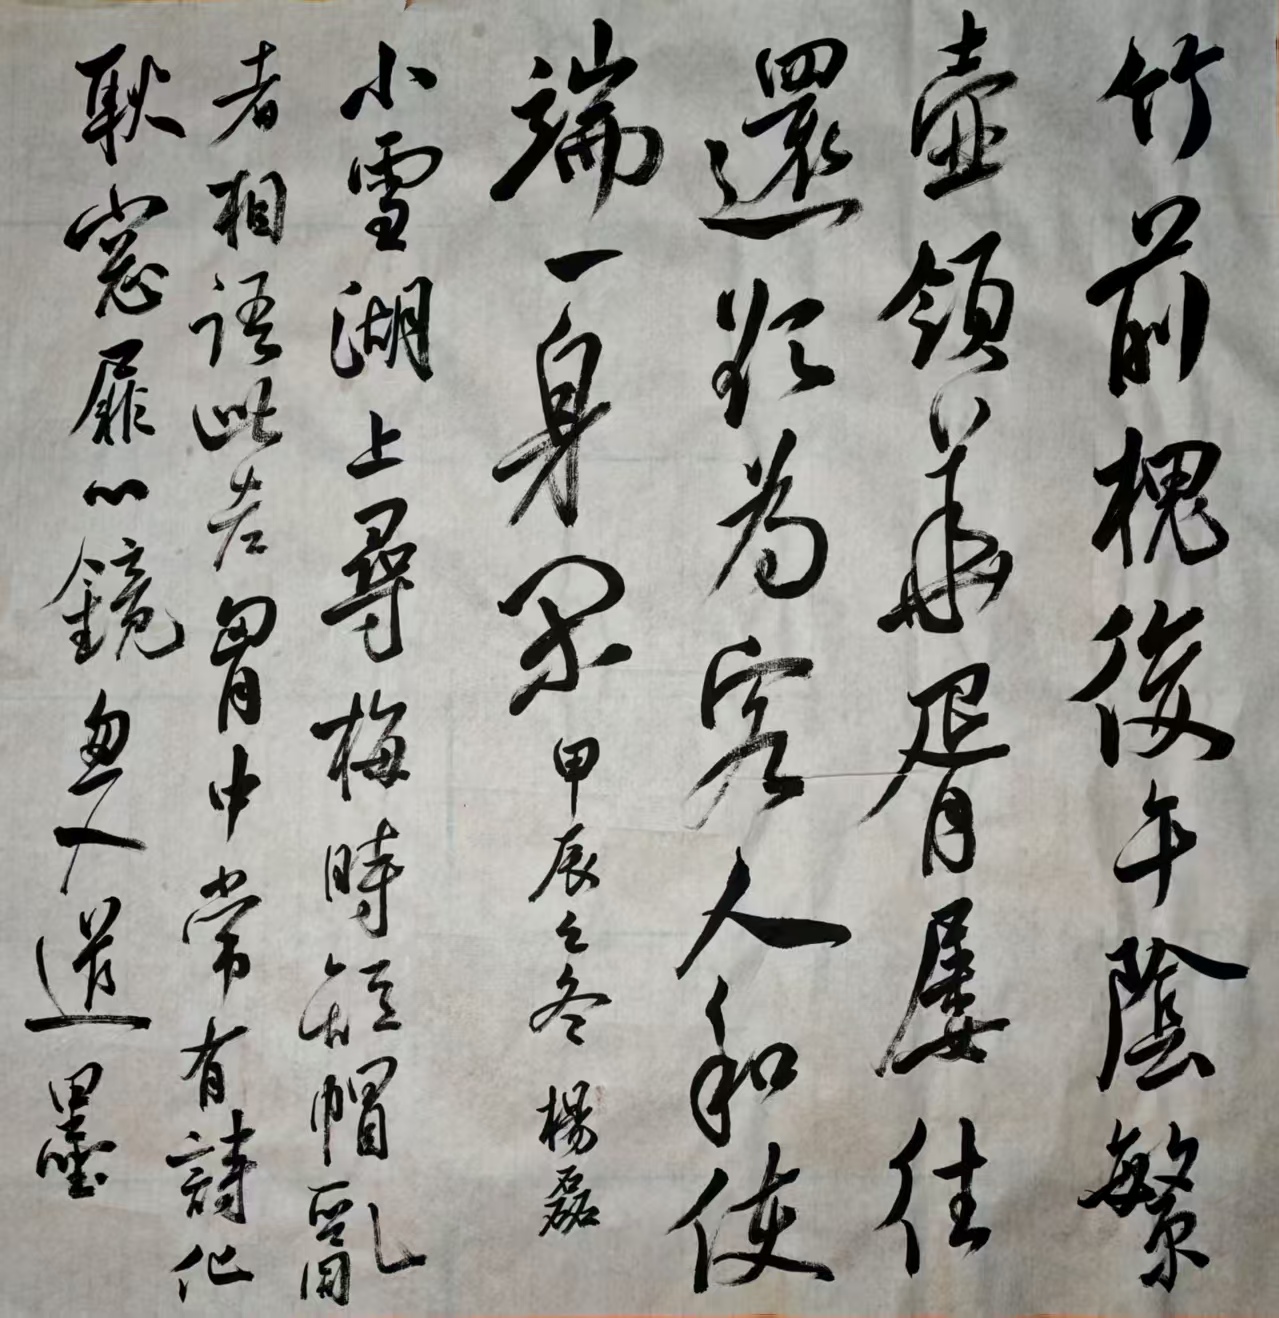 竹前槐後午陰繁
壺領華胥屢往
還為客人和使
端一身果 甲辰之冬 楊磊
小雪湖上尋梅時短帽亂
者相語此老胷中常有詩化
耿窓扉心鏡忽入道墨